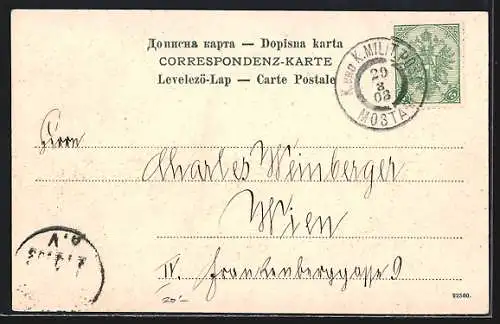 Дописна карта — Dopisna karta
CORRESPONDENZ-KARTE
Levelező-Lap — Carte Postale
K. UND K. MILIT. POST
29
3
03
MOSTAR
5
Herrn
Charles Weinberger
Wien
IV. Frankenberggasse 9
20.-
92560.